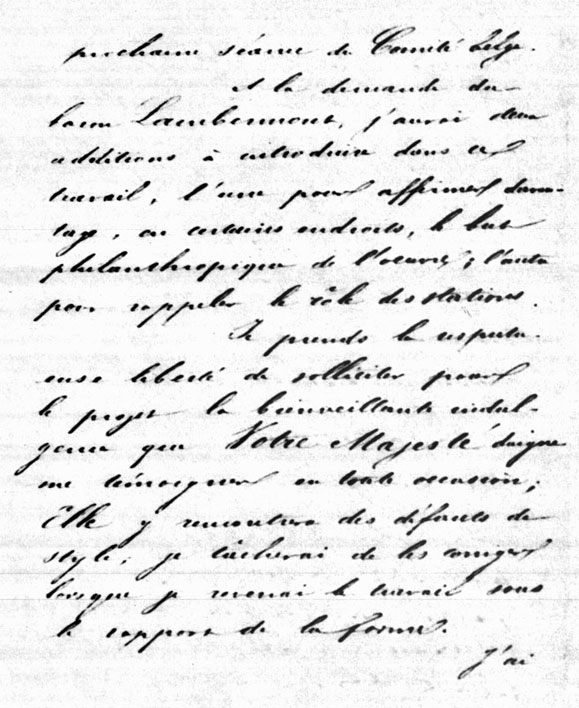 prochaine séance du Comité belge.
A la demande du
baron Lambermont, j'aurai deux
additions à introduire dans ce
travail, l'une pour affirmer davan-
tage, en certains endroits, le but
philanthropique de l'oeuvre; l'autre
pour rappeler le rôle des stations.
Je prends la respectu-
euse liberté de solliciter pour
le projet la bienveillante indul-
gence que Votre Majesté daigne
me témoigner en toute occasion;
Elle y rencontrera des défauts de
style, je tâcherai de les corriger
lorsque je reverrai le travail sous
le rapport de la forme.
J'ai